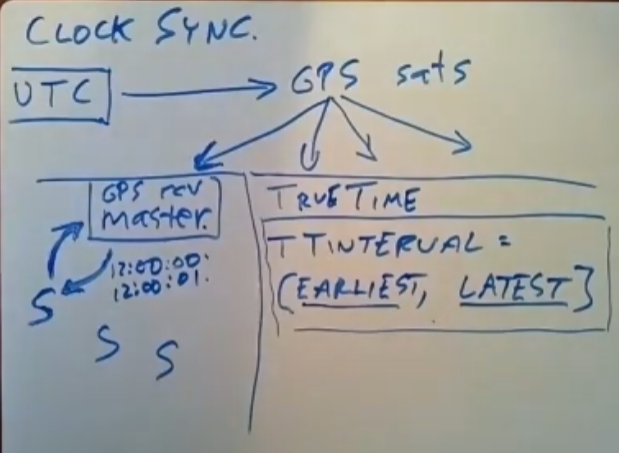 CLOCK SYNC.
UTC
GPS sats
GPS rcv
master.
12:00:00:
12:00:01.
S
S
S
TRUETIME
TTINTERVAL =
[EARLIEST, LATEST]